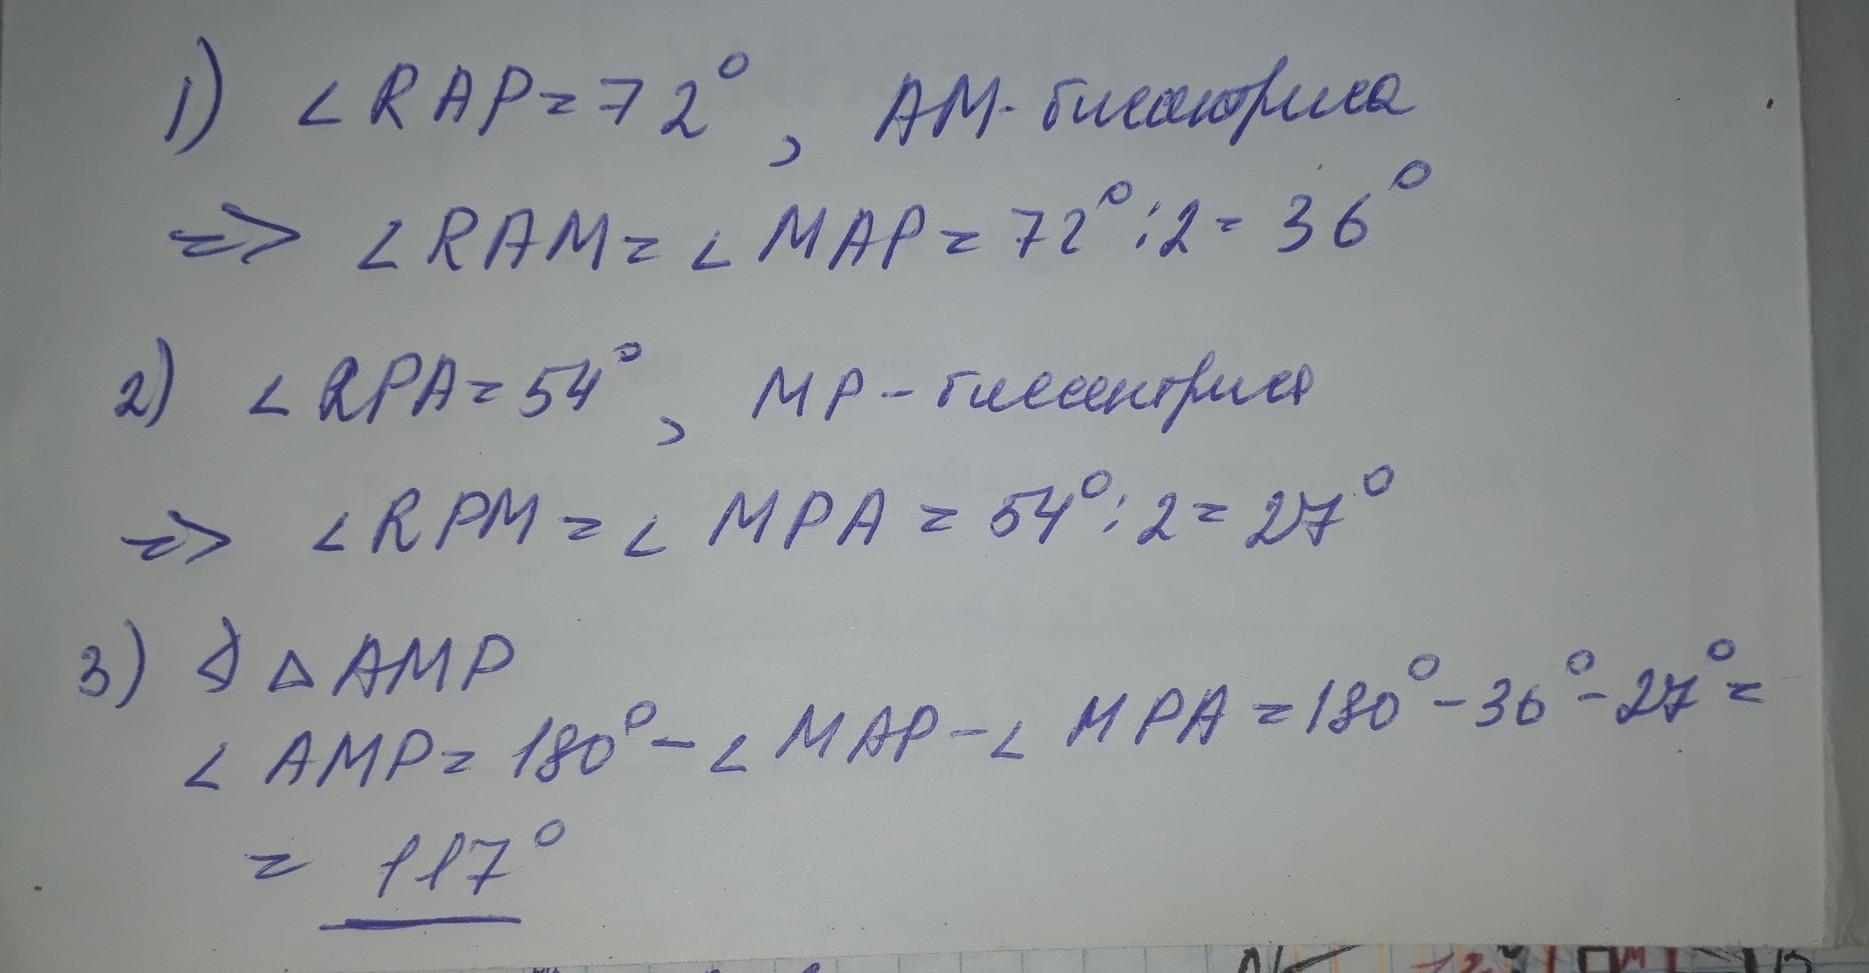 1) ∠RAP=72°, AM- биссектриса
=> ∠RAM=∠MAP=72°:2=36°
2) ∠RPA=54°, MP-биссектриса
=> ∠RPM=∠MPA=54°:2=27°
3) △AMP
∠AMP=180°-∠MAP-∠MPA=180°-36°-27°=
= 117°